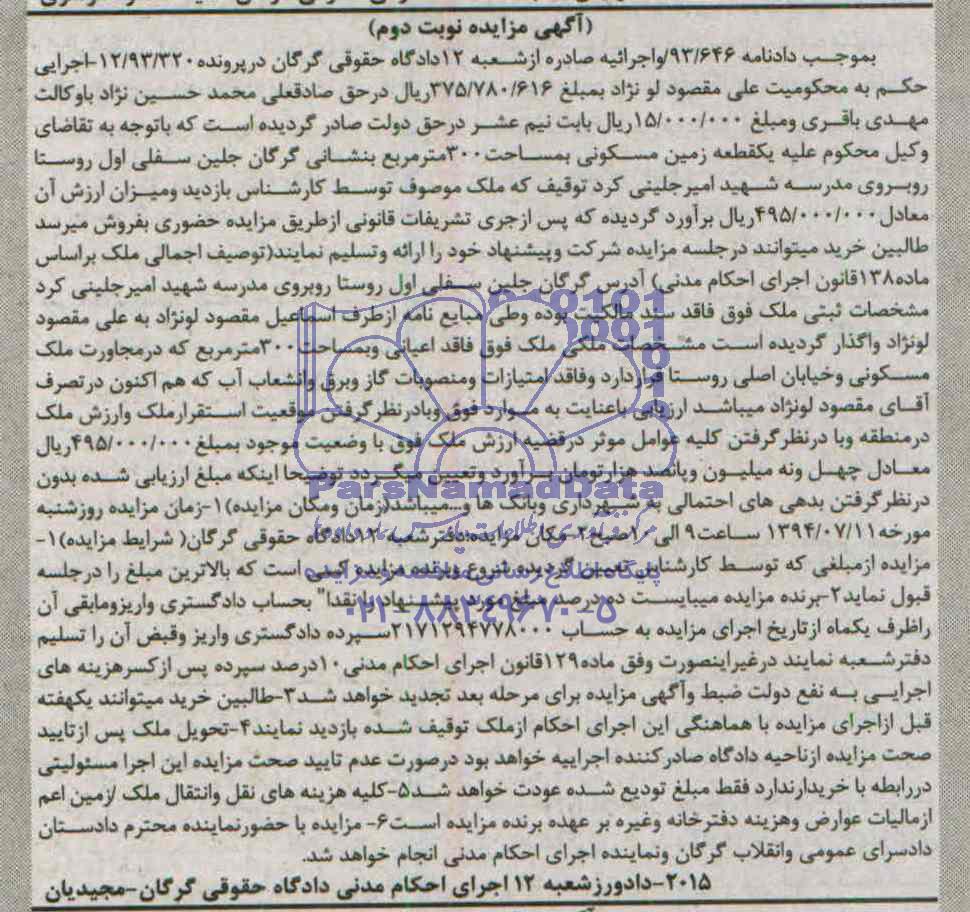 (آگهی مزایده نوبت دوم)
بموجب دادنامه ۹۳/۶۴۶/واجرائیه صادره ازشعبه ۱۲دادگاه حقوقی گرگان درپرونده۱۲/۹۳/۳۲۰-اجرایی
حکم به محکومیت علی مقصود لو نژاد بمبلغ ۳۷۵/۷۸۰/۶۱۶ریال درحق صادقعلی محمد حسین نژاد باوکالت
مهدی باقری ومبلغ ۱۵/۰۰۰/۰۰۰ریال بابت نیم عشر درحق دولت صادر گردیده است که باتوجه به تقاضای
وکیل محکوم علیه یکقطعه زمین مسکونی بمساحت۳۰۰مترمربع بنشانی گرگان جلین سفلی اول روستا
روبروی مدرسه شهید امیرجلینی کرد توقیف که ملک موصوف توسط کارشناس بازدید ومیزان ارزش آن
معادل۴۹۵/۰۰۰/۰۰۰ریال برآورد گردیده که پس ازجری تشریفات قانونی ازطریق مزایده حضوری بفروش میرسد
طالبین خرید میتوانند درجلسه مزایده شرکت وپیشنهاد خود را ارائه وتسلیم نمایند(توصیف اجمالی ملک براساس
ماده۱۳۸قانون اجرای احکام مدنی) آدرس گرگان جلین سفلی اول روستا روبروی مدرسه شهید امیرجلینی کرد
مشخصات ثبتی ملک فوق فاقد سند مالکیت بوده وطی مبایع نامه ازطرف اسماعیل مقصود لونژاد به علی مقصود
لونژاد واگذار گردیده است مشخصات ملکی ملک فوق فاقد اعیانی وبمساحت۳۰۰مترمربع که درمجاورت ملک
مسکونی وخیابان اصلی روستا قراردارد وفاقد امتیازات ومنصوبات گاز وبرق وانشعاب آب که هم اکنون درتصرف
آقای مقصود لونژاد میباشد ارزیابی باعنایت به موارد فوق وبادرنظرگرفتن موقعیت استقرارملک وارزش ملک
درمنطقه وبا درنظرگرفتن کلیه عوامل موثر درقضیه ارزش ملک فوق با وضعیت موجود بمبلغ۴۹۵/۰۰۰/۰۰۰ریال
معادل چهل ونه میلیون وپانصد هزارتومان برآورد وتعیین میگردد توضیحا اینکه مبلغ ارزیابی شده بدون
درنظرگرفتن بدهی های احتمالی به شهرداری وبانک ها و...میباشد(زمان ومکان مزایده)۱-زمان مزایده روزشنبه
مورخه۱۳۹۴/۰۷/۱۱ ساعت۹ الی۱۰صبح۲-مکان مزایده:دفترشعبه ۱۲دادگاه حقوقی گرگان( شرایط مزایده)۱-
مزایده ازمبلغی که توسط کارشناس تعیین گردیده شروع وبرنده مزایده کسی است که بالاترین مبلغ را درجلسه
قبول نماید۲-برنده مزایده میبایست ده درصد مبلغ مورد پیشنهاد را نقدا" بحساب دادگستری واریزومابقی آن
راظرف یکماه ازتاریخ اجرای مزایده به حساب ۲۱۷۱۲۹۴۷۷۸۰۰۰سپرده دادگستری واریز وقبض آن را تسلیم
دفترشعبه نمایند درغیراینصورت وفق ماده۱۲۹قانون اجرای احکام مدنی۱۰درصد سپرده پس ازکسرهزینه های
اجرایی به نفع دولت ضبط وآگهی مزایده برای مرحله بعد تجدید خواهد شد۳-طالبین خرید میتوانند یکهفته
قبل ازاجرای مزایده با هماهنگی این اجرای احکام ازملک توقیف شده بازدید نمایند۴-تحویل ملک پس ازتایید
صحت مزایده ازناحیه دادگاه صادرکننده اجراییه خواهد بود درصورت عدم تایید صحت مزایده این اجرا مسئولیتی
دررابطه با خریدارندارد فقط مبلغ تودیع شده عودت خواهد شد۵-کلیه هزینه های نقل وانتقال ملک /زمین اعم
ازمالیات عوارض وهزینه دفترخانه وغیره بر عهده برنده مزایده است۶- مزایده با حضورنماینده محترم دادستان
دادسرای عمومی وانقلاب گرگان ونماینده اجرای احکام مدنی انجام خواهد شد.
۲۰۱۵-دادورزشعبه ۱۲ اجرای احکام مدنی دادگاه حقوقی گرگان-مجیدیان
ParsNamadData
پایگاه اطلاع رسانی مناقصه و مزایده
۰۲۱-۸۸۳۴۹۶۷۰-۵